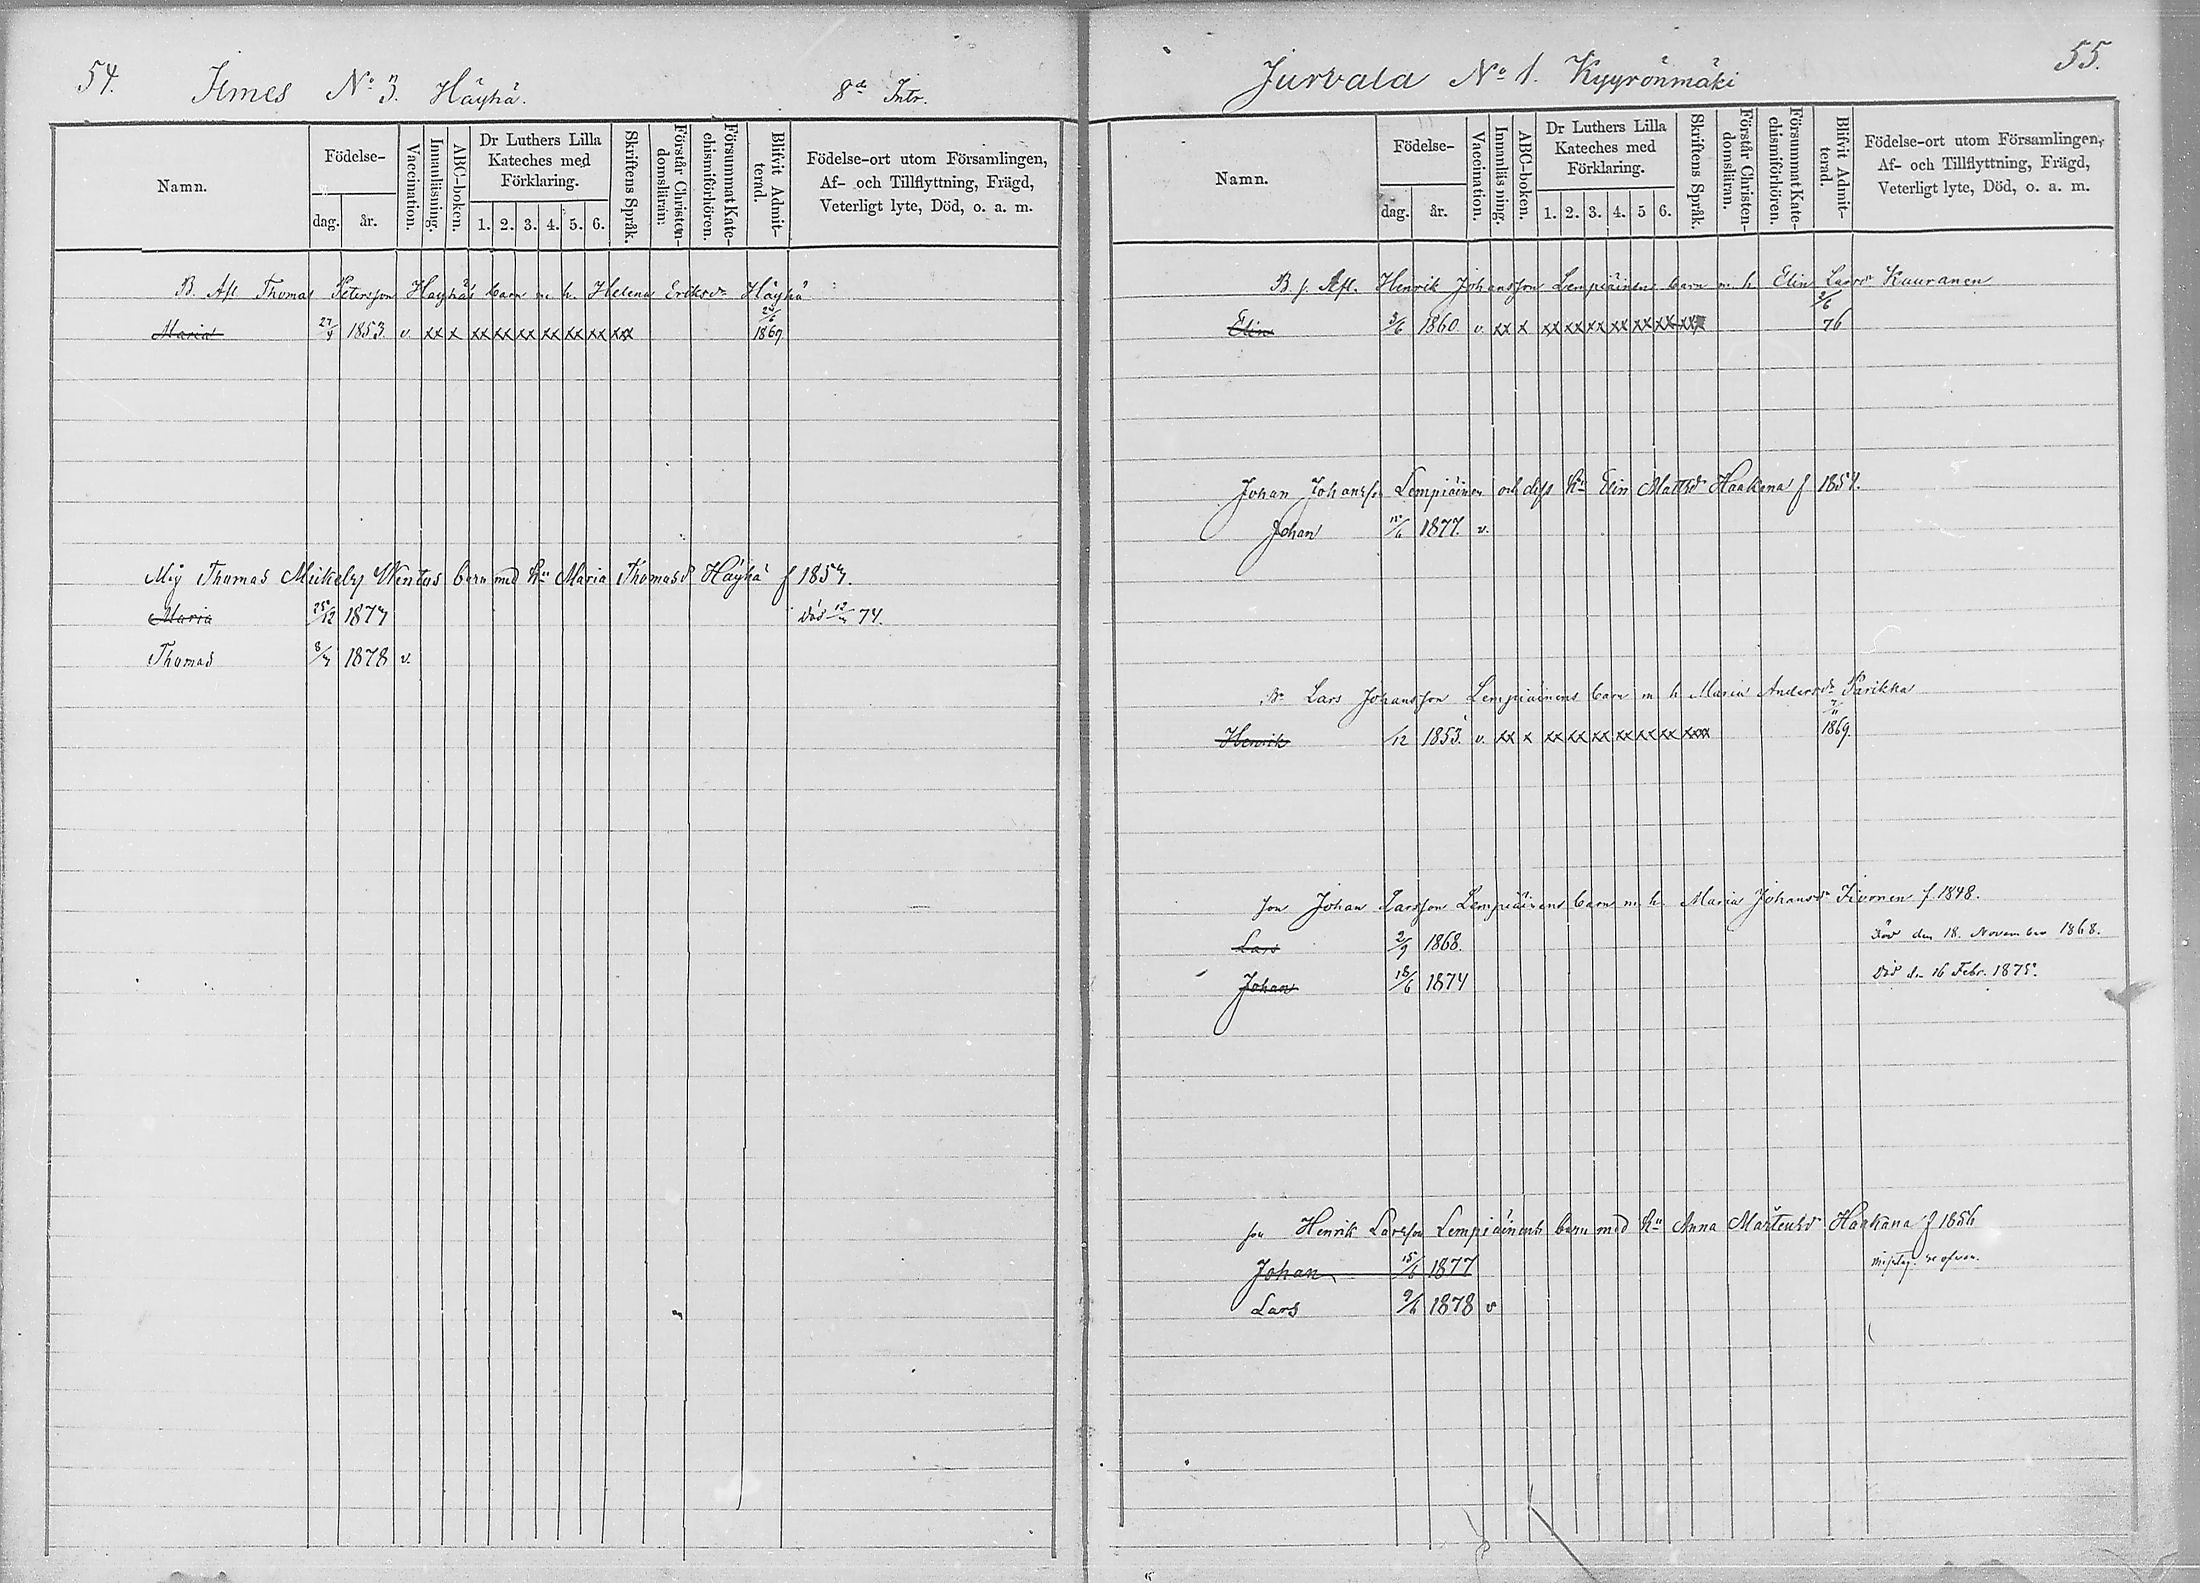 54.
Ilmes No 3. Häyhä. 8de Intr.
Namn.
Födelse-
dag.
år.
Vaccination.
Innanläsning.
ABC-boken.
Dr Luthers Lilla Kateches med Förklaring.
1. 2. 3. 4. 5. 6.
Skriftens Språk.
Förstår Christendomsläran:
Försummat Katechismiförhören.
Blifvit Admitterad.
Födelse-ort utom Församlingen, Af- och Tillflyttning, Frägd, Veterligt lyte, Död, o. a. m.
B. Afl Thomas Petersson Häyhäs barn m. h. Helena Eriksdr Häyhä
Maria 27/4 1853. v. xx x xx xx xx xx xx xx xxx 24/6 1869
Måg Thomas Mickelss Wentus barn med Hu Maria Thomasdr Häyhä f 1853.
Maria 25/12 1877 Död 74.
Thomas 8/7 1878 v.
55.
Jurvala No 1. Kyyrönmäki
Namn.
Födelse-
dag.
år.
Vaccination.
Innanläsning.
ABC-boken.
Dr Luthers Lilla Kateches med Förklaring.
1. 2. 3. 4. 5 6.
Skriftens Språk.
Förstår Christendomsläran.
Försummat Katechismiförhören.
Blifvit Admitterad.
Födelse-ort utom Församlingen, Af- och Tillflyttning, Frägd, Veterligt lyte, Död, o. a. m.
B. s. Afl. Henrik Johansson Lempiäinens barn m. h. Elin Larsdr Kuuranen
Elin 3/6 1860. v. xx x xx xx xx xx xx xx xx 3/6 76
Johan Johansson Lempiäinen och dess Hu Elin Mattsdr Haakana f 1854.
Johan 15/6 1877. v.
Br Lars Johansson Lempiäinens barn m h Maria Andersdr Parikka
Henrik /12 1853. v. xx x xx xx xx xx xx xx xxx 7/11 1869.
son Johan Larsson Lempiäinens barn m. h. Maria Johansdr f 1848.
Lars 2/9 1868. Död den 18. November 1868.
Johan 18/6 1874 Död d. 16 Febr. 1875.
son Henrik Larsson Lempiäinens barn med Hu Anna Mårtensdr Haakana f 1856
Johan 15/6 1877 misstag. se ofvan.
Lars 9/6 1878 v